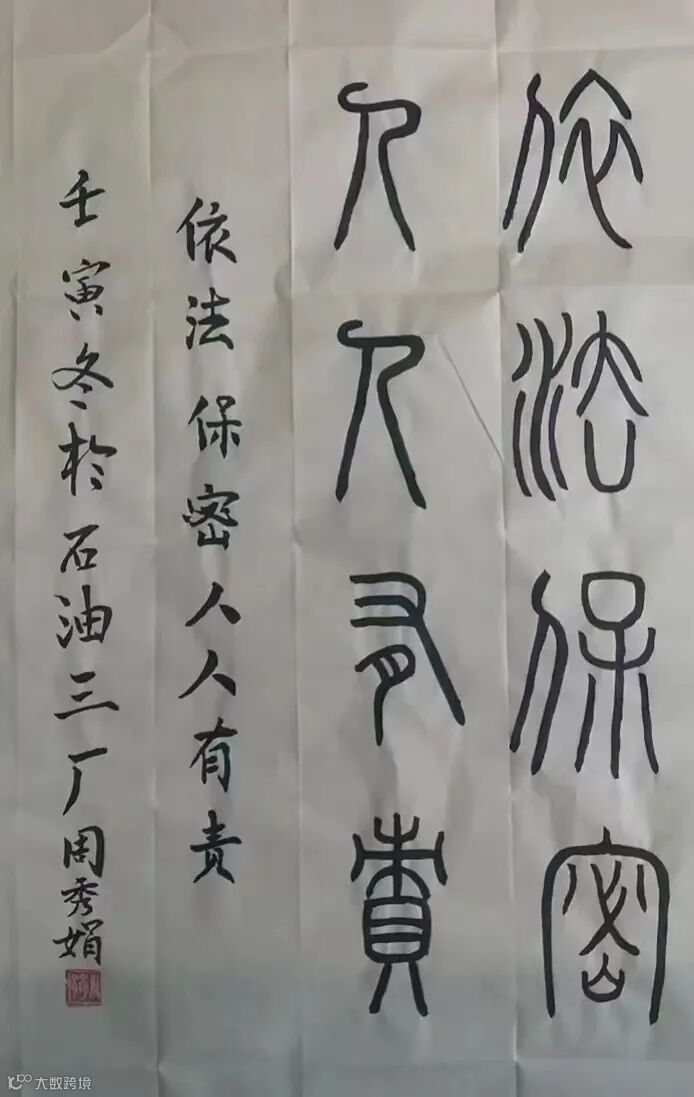 依法保密
人人有責
依法保密人人有责
壬寅冬於石油三厂周秀娟
大数跨境